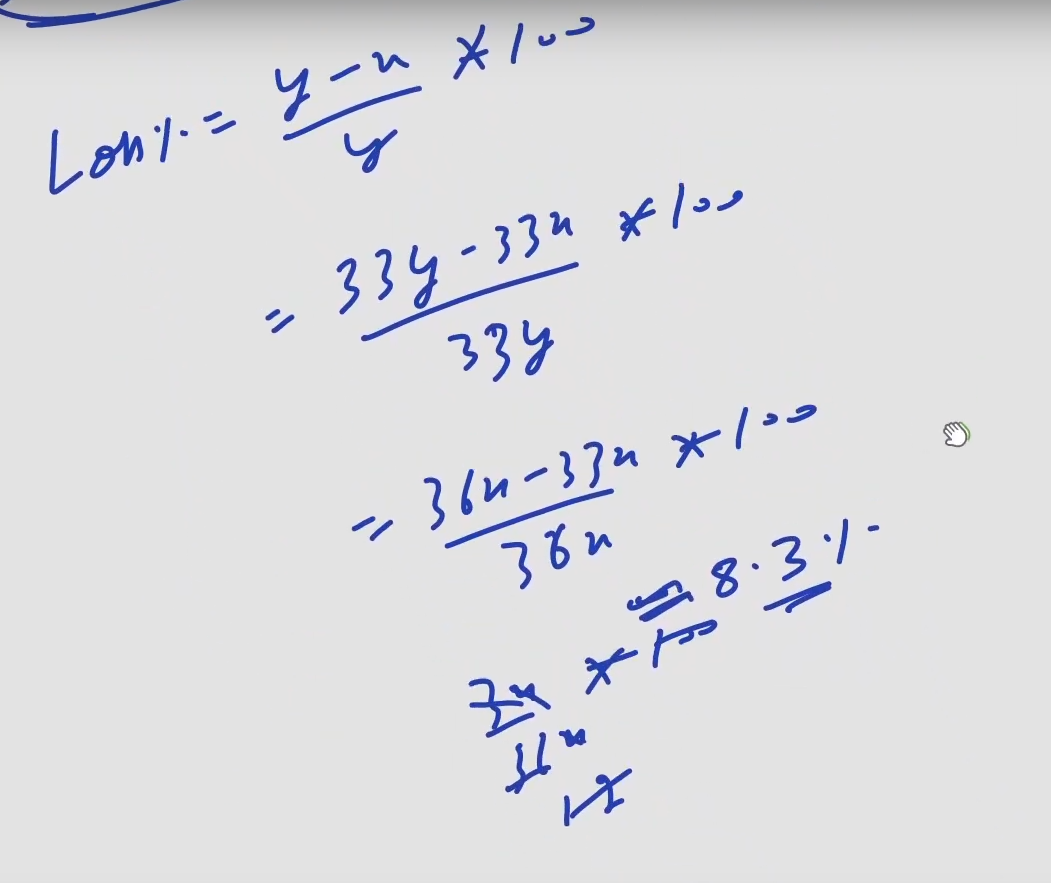 Loss% = y-x/y * 100
= 33y-33x/33y * 100
= 36x-33x/36x * 100
= 8.3%
3x/36x * 100
12